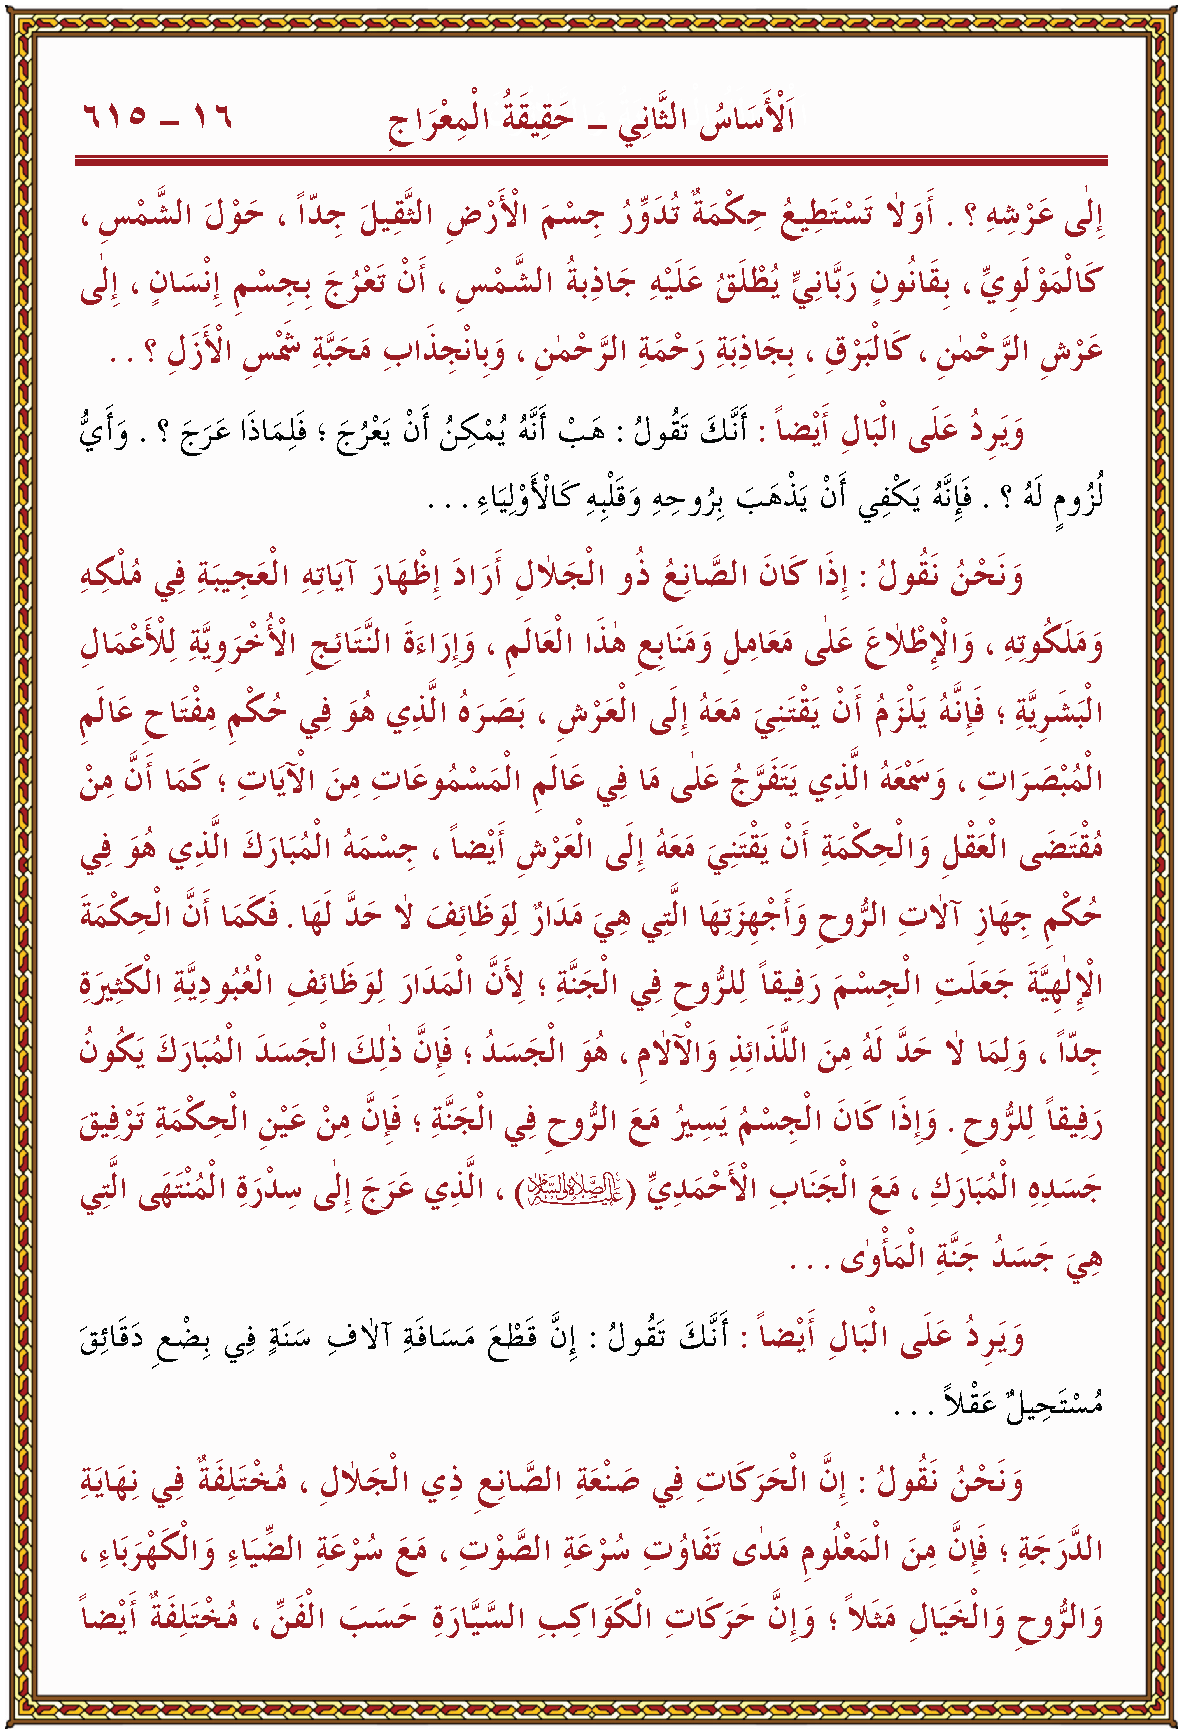 اَلْأَسَاسُ الثَّانِي ــ حَقِيقَةُ الْمِعْرَاجِ ١٦ ــ ٦١٥
إِلٰى عَرْشِهِ ؟ . أَوَ لاٰ تَسْتَطِيعُ حِكْمَةٌ تُدَوِّرُ جِسْمَ الْأَرْضِ الثَّقِيلَ جِدّاً ، حَوْلَ الشَّمْسِ ،
كَالْمَوْلَوِيِّ ، بِقَانُونٍ رَبَّانِيٍّ يُطْلَقُ عَلَيْهِ جَاذِبةُ الشَّمْسِ ، أَنْ تَعْرُجَ بِجِسْمِ إِنْسَانٍ ، إِلٰى
عَرْشِ الرَّحْمٰنِ ، كَالْبَرْقِ ، بِجَاذِبَةِ رَحْمَةِ الرَّحْمٰنِ ، وَبِانْجِذَابِ مَحَبَّةِ شَمْسِ الْأَزَلِ ؟ . .
وَيَرِدُ عَلَى الْبَالِ أَيْضاً : أَنَّكَ تَقُولُ : هَبْ أَنَّهُ يُمْكِنُ أَنْ يَعْرُجَ ؛ فَلِمَاذَا عَرَجَ ؟ . وَأَيُّ
لُزُومٍ لَهُ ؟ . فَإِنَّهُ يَكْفِي أَنْ يَذْهَبَ بِرُوحِهِ وَقَلْبِهِ كَالْأَوْلِيَاءِ . . .
وَنَحْنُ نَقُولُ : إِذَا كَانَ الصَّانِعُ ذُو الْجَلاٰلِ أَرَادَ إِظْهَارَ آيَاتِهِ الْعَجِيبَةِ فِي مُلْكِهِ
وَمَلَكُوتِهِ ، وَالْإِطْلاٰعَ عَلٰى مَعَامِلِ وَمَنَابِعِ هٰذَا الْعَالَمِ ، وَإِرَاءَةَ النَّتَائِجِ الْأُخْرَوِيَّةِ لِلْأَعْمَالِ
الْبَشَرِيَّةِ ؛ فَإِنَّهُ يَلْزَمُ أَنْ يَقْتَنِيَ مَعَهُ إِلَى الْعَرْشِ ، بَصَرَهُ الَّذِي هُوَ فِي حُكْمِ مِفْتَاحِ عَالَمِ
الْمُبْصَرَاتِ ، وَسَمْعَهُ الَّذِي يَتَفَرَّجُ عَلٰى مَا فِي عَالَمِ الْمَسْمُوعَاتِ مِنَ الْآيَاتِ ؛ كَمَا أَنَّ مِنْ
مُقْتَضَى الْعَقْلِ وَالْحِكْمَةِ أَنْ يَقْتَنِيَ مَعَهُ إِلَى الْعَرْشِ أَيْضاً ، جِسْمَهُ الْمُبَارَكَ الَّذِي هُوَ فِي
حُكْمِ جِهَازِ آلاٰتِ الرُّوحِ وَأَجْهِزَتِهَا الَّتِي هِيَ مَدَارٌ لِوَظَائِفَ لاٰ حَدَّ لَهَا . فَكَمَا أَنَّ الْحِكْمَةَ
الْإِلٰهِيَّةَ جَعَلَتِ الْجِسْمَ رَفِيقاً لِلرُّوحِ فِي الْجَنَّةِ ؛ لِأَنَّ الْمَدَارَ لِوَظَائِفِ الْعُبُودِيَّةِ الْكَثِيرَةِ
جِدّاً ، وَلِمَا لاٰ حَدَّ لَهُ مِنَ اللَّذَائِذِ وَالْآلاٰمِ ، هُوَ الْجَسَدُ ؛ فَإِنَّ ذٰلِكَ الْجَسَدَ الْمُبَارَكَ يَكُونُ
رَفِيقاً لِلرُّوحِ . وَإِذَا كَانَ الْجِسْمُ يَسِيرُ مَعَ الرُّوحِ فِي الْجَنَّةِ ؛ فَإِنَّ مِنْ عَيْنِ الْحِكْمَةِ تَرْفِيقَ
جَسَدِهِ الْمُبَارَكِ ، مَعَ الْجَنَابِ الْأَحْمَدِيِّ (عَلَيْهِ الصَّلَاةُ وَالسَّلَامُ) ، الَّذِي عَرَجَ إِلٰى سِدْرَةِ الْمُنْتَهَى الَّتِي
هِيَ جَسَدُ جَنَّةِ الْمَأْوٰى . . .
وَيَرِدُ عَلَى الْبَالِ أَيْضاً : أَنَّكَ تَقُولُ : إِنَّ قَطْعَ مَسَافَةِ آلاٰفِ سَنَةٍ فِي بِضْعِ دَقَائِقَ
مُسْتَحِيلٌ عَقْلاً . . .
وَنَحْنُ نَقُولُ : إِنَّ الْحَرَكَاتِ فِي صَنْعَةِ الصَّانِعِ ذِي الْجَلاٰلِ ، مُخْتَلِفَةٌ فِي نِهَايَةِ
الدَّرَجَةِ ؛ فَإِنَّ مِنَ الْمَعْلُومِ مَدٰى تَفَاوُتِ سُرْعَةِ الصَّوْتِ ، مَعَ سُرْعَةِ الضِّيَاءِ وَالْكَهْرَبَاءِ ،
وَالرُّوحِ وَالْخَيَالِ مَثَلاً ؛ وَإِنَّ حَرَكَاتِ الْكَوَاكِبِ السَّيَّارَةِ حَسَبَ الْفَنِّ ، مُخْتَلِفَةٌ أَيْضاً